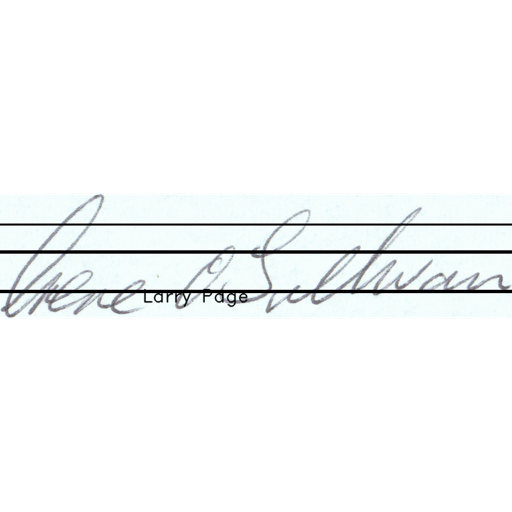 Irene O'Sullivan
Larry Page